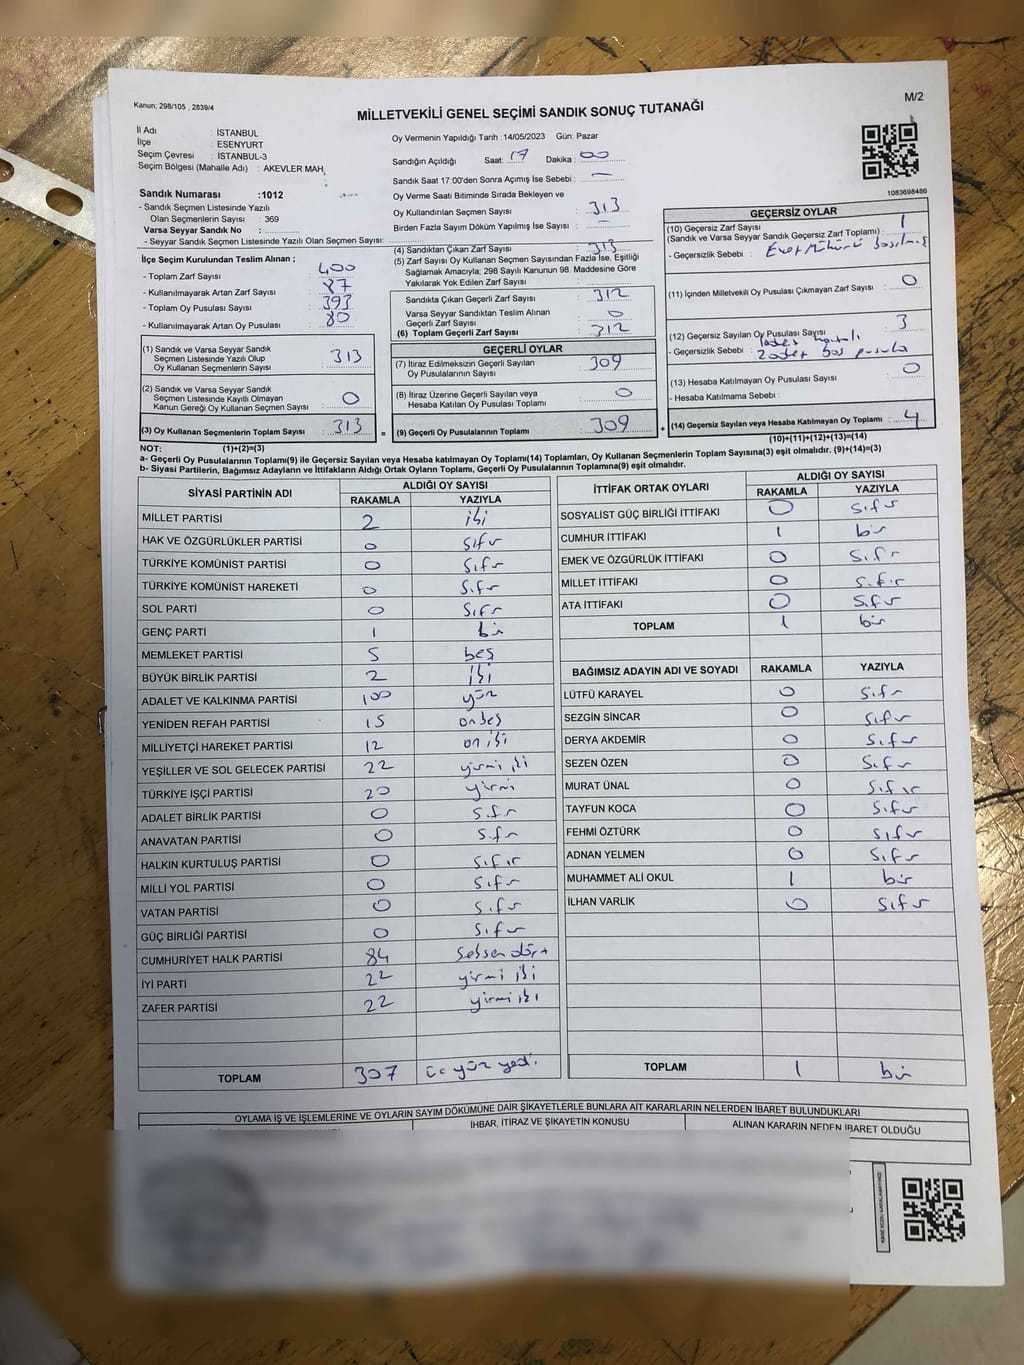 Kanun; 298/105 , 2839/4
MİLLETVEKİLİ GENEL SEÇİMİ SANDIK SONUÇ TUTANAĞI
M/2
İl Adı : İSTANBUL
İlçe : ESENYURT
Seçim Çevresi : İSTANBUL-3
Seçim Bölgesi (Mahalle Adı) : AKEVLER MAH.
Sandık Numarası :1012
- Sandık Seçmen Listesinde Yazılı
Olan Seçmenlerin Sayısı : 369
Varsa Seyyar Sandık No :
- Seyyar Sandık Listesinde Yazılı Olan Seçmen Sayısı:
Oy Vermenin Yapıldığı Tarih :14/05/2023 Gün: Pazar
Sandığın Açıldığı Saat: 17 Dakika : 00
Sandık Saat 17:00'den Sonra Açımış İse Sebebi : —
Oy Verme Saati Bitiminde Sırada Bekleyen ve
Oy Kullandırılan Seçmen Sayısı : 313
Birden Fazla Sayım Döküm Yapılmış İse Sayısı : —
1083698486
İlçe Seçim Kurulundan Teslim Alınan ;
- Toplam Zarf Sayısı : 400
- Kullanılmayarak Artan Zarf Sayısı : 87
- Toplam Oy Pusulası Sayısı : 393
- Kullanılmayarak Artan Oy Pusulası : 80
(1) Sandık ve Varsa Seyyar Sandık
Seçmen Listesinde Yazılı Olup
Oy Kullanan Seçmenlerin Sayısı : 313
(2) Sandık ve Varsa Seyyar Sandık
Seçmen Listesinde Kayıtlı Olmayan
Kanun Gereği Oy Kullanan Seçmen Sayısı : 0
(3) Oy Kullanan Seçmenlerin Toplam Sayısı : 313
(4) Sandıktan Çıkan Zarf Sayısı : 313
(5) Zarf Sayısı Oy Kullanan Seçmen Sayısından Fazla İse, Eşitliği
Sağlamak Amacıyla; 298 Sayılı Kanunun 98. Maddesine Göre
Yakılarak Yok Edilen Zarf Sayısı :
Sandıkta Çıkan Geçerli Zarf Sayısı : 312
Varsa Seyyar Sandıktan Teslim Alınan
Geçerli Zarf Sayısı : 0
(6) Toplam Geçerli Zarf Sayısı : 312
GEÇERLİ OYLAR
(7) İtiraz Edilmeksizin Geçerli Sayılan
Oy Pusulalarının Sayısı : 309
(8) İtiraz Üzerine Geçerli Sayılan veya
Hesaba Katılan Oy Pusulası Toplamı : 0
= (9) Geçerli Oy Pusulalarının Toplamı : 309
GEÇERSİZ OYLAR
(10) Geçersiz Zarf Sayısı
(Sandık ve Varsa Seyyar Sandık Geçersiz Zarf Toplamı) : 1
- Geçersizlik Sebebi : Evet Mühürü basılmış
(11) İçinden Milletvekili Oy Pusulası Çıkmayan Zarf Sayısı : 0
(12) Geçersiz Sayılan Oy Pusulası Sayısı : 3
- Geçersizlik Sebebi : 1 adet
2 adet boş pusula
(13) Hesaba Katılmayan Oy Pusulası Sayısı : 0
- Hesaba Katılmama Sebebi :
+ (14) Geçersiz Sayılan veya Hesaba Katılmayan Oy Toplamı : 4
NOT: (1)+(2)=(3) (10)+(11)+(12)+(13)=(14)
a- Geçerli Oy Pusulalarının Toplamı(9) ile Geçersiz Sayılan veya Hesaba katılmayan Oy Toplamı(14) Toplamları, Oy Kullanan Seçmenlerin Toplam Sayısına(3) eşit olmalıdır. (9)+(14)=(3)
b- Siyasi Partilerin, Bağımsız Adayların ve İttifakların Aldığı Ortak Oyların Toplamı, Geçerli Oy Pusulalarının Toplamına(9) eşit olmalıdır.
SİYASİ PARTİNİN ADI ALDIĞI OY SAYISI
RAKAMLA YAZIYLA
MİLLET PARTİSİ 2 iki
HAK VE ÖZGÜRLÜKLER PARTİSİ 0 sıfır
TÜRKİYE KOMÜNİST PARTİSİ 0 sıfır
TÜRKİYE KOMÜNİST HAREKETİ 0 sıfır
SOL PARTİ 0 sıfır
GENÇ PARTİ 1 bir
MEMLEKET PARTİSİ 5 beş
BÜYÜK BİRLİK PARTİSİ 2 iki
ADALET VE KALKINMA PARTİSİ 100 yüz
YENİDEN REFAH PARTİSİ 15 onbeş
MİLLİYETÇİ HAREKET PARTİSİ 12 on iki
YEŞİLLER VE SOL GELECEK PARTİSİ 22 yirmi iki
TÜRKİYE İŞÇİ PARTİSİ 20 yirmi
ADALET BİRLİK PARTİSİ 0 sıfır
ANAVATAN PARTİSİ 0 sıfır
HALKIN KURTULUŞ PARTİSİ 0 sıfır
MİLLİ YOL PARTİSİ 0 sıfır
VATAN PARTİSİ 0 sıfır
GÜÇ BİRLİĞİ PARTİSİ 0 sıfır
CUMHURİYET HALK PARTİSİ 84 seksen dört
İYİ PARTİ 22 yirmi iki
ZAFER PARTİSİ 22 yirmi iki
TOPLAM 307 üç yüz yedi
İTTİFAK ORTAK OYLARI ALDIĞI OY SAYISI
RAKAMLA YAZIYLA
SOSYALİST GÜÇ BİRLİĞİ İTTİFAKI 0 sıfır
CUMHUR İTTİFAKI 1 bir
EMEK VE ÖZGÜRLÜK İTTİFAKI 0 sıfır
MİLLET İTTİFAKI 0 sıfır
ATA İTTİFAKI 0 sıfır
TOPLAM 1 bir
BAĞIMSIZ ADAYIN ADI VE SOYADI RAKAMLA YAZIYLA
LÜTFÜ KARAYEL 0 sıfır
SEZGİN SİNCAR 0 sıfır
DERYA AKDEMİR 0 sıfır
SEZEN ÖZEN 0 sıfır
MURAT ÜNAL 0 sıfır
TAYFUN KOCA 0 sıfır
FEHMİ ÖZTÜRK 0 sıfır
ADNAN YELMEN 0 sıfır
MUHAMMET ALİ OKUL 1 bir
İLHAN VARLIK 0 sıfır
TOPLAM 1 bir
OYLAMA İŞ VE İŞLEMLERİNE VE OYLARIN SAYIM DÖKÜMÜNE DAİR ŞİKAYETLERLE BUNLARA AİT KARARLARIN NELERDEN İBARET BULUNDUKLARI
İHBAR, İTİRAZ VE ŞİKAYETİN KONUSU ALINAN KARARIN NEDEN İBARET OLDUĞU